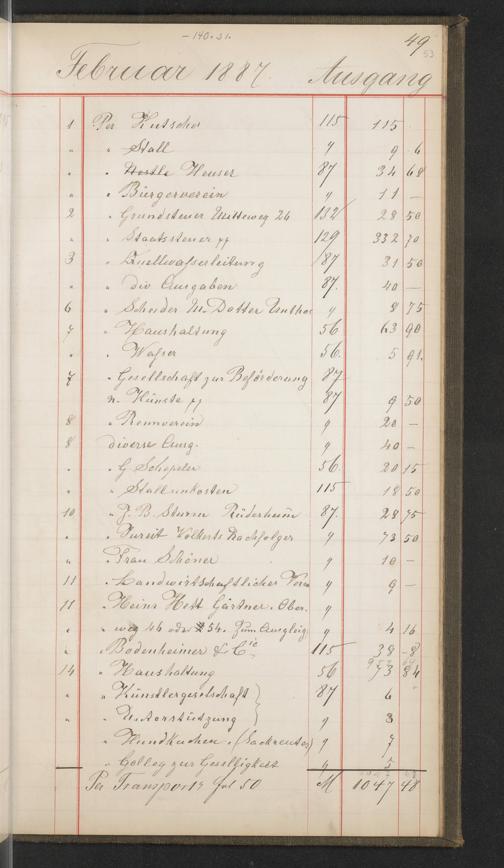 - 140.31.
49
53
Februar 1887. Ausgang
1 Per Kutscher 115 115
" " Stall " 9 6
" " Heuser 87 34 68
" " Bürgerverein " 11 —
2 " Grundsteuer Mittelweg 26 132 28 50
" " Staatssteuer pp 129 332 70
3 " Quellwasserleitung 87 31 50
" " div Ausgaben 87. 40 —
6 " " 8 75
7 " Haushaltung 56 63 90
" " Wasser 56. 5 91.
7 " Gesellschaft zur Beförderung 87
n. Künste pp 87 9 50
8 " Rennverein " 20 —
8 diverse Ausg. " 40 —
" " G Schepeler 56. 20 15
" " Stallunkosten 115 18 50
10 " J. B. Sturm Rüdesheim 87. 28 75
" " Volkerts Nachfolger " 73 50
" " Frau Schöner " 10 —
11 " Landwirtschaftlicher Verein " 9 —
11 " Heinr Hett Gärtner. Ober. "
" " weg 46 oder 54. zum Ausgleig. " 4 16
" Bodenheimer & Cie 115 38 -8
14 " Haushaltung 56 73 84
" " Künstlergesellschaft 87 6
" " Unterstützung " 3
" Hundkuchen. (Sackreuter) " 7
" Colleg zur Geselligkeit " 5
Per Transport fol 50 M 1047 48